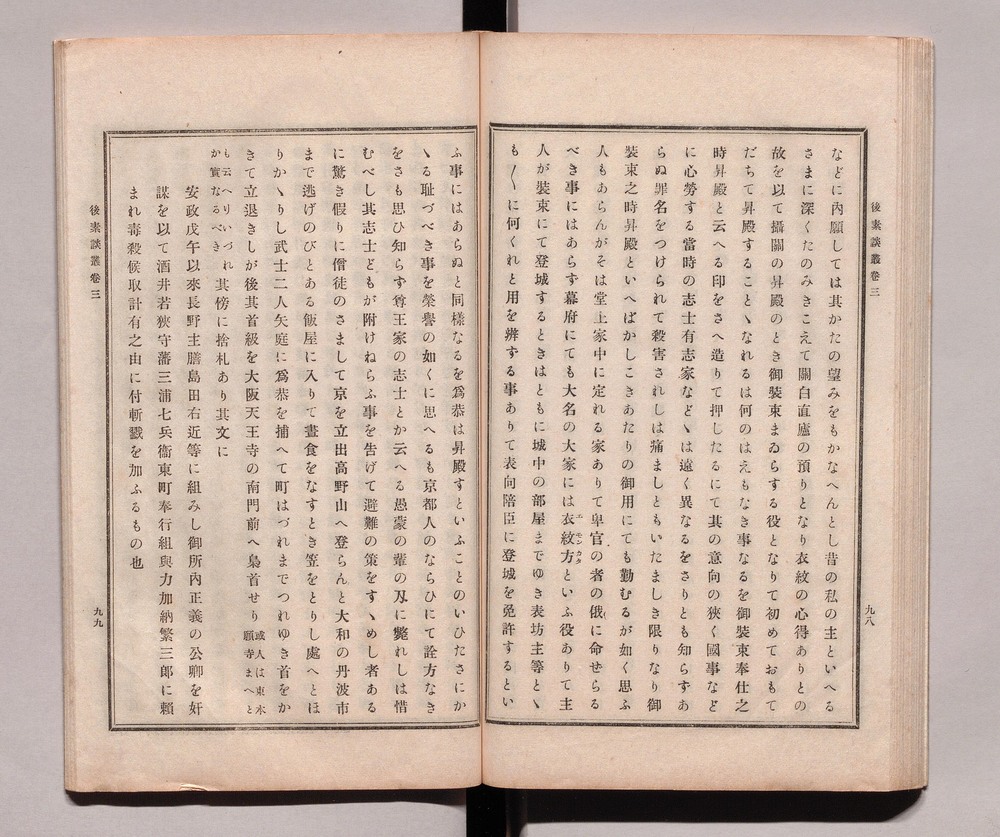 後素談叢卷三
九八
などに內願しては其かたの望みをもかなへんとし昔の私の主といへる
さまに深くたのみきこえて關白直廬の預りとなり衣紋の心得ありとの
故を以て攝關の昇殿のとき御裝束まゐらする役となりて初めておもて
だちて昇殿することヽなれるは何のはえもなき事なるを御裝束奉仕之
時昇殿と云へる印をさへ造りて押したるにて其の意向の狹く國事など
に心勞する當時の志士有志家などヽは遠く異なるをさりとも知らずあ
らぬ罪名をつけられて殺害されしは痛ましともいたましき限りなり御
裝束之時昇殿といへばかしこきあたりの御用にても勤むるが如く思ふ
人もあらんがそは堂上家中に定れる家ありて卑官の者の俄に命せらる
べき事にはあらず幕府にても大名の大家には衣紋方といふ役ありて主
エモンカタ
人が裝束にて登城するときはともに城中の部屋までゆき表坊主等とヽ
も〳〵に何くれと用を辨ずる事ありて表向陪臣に登城を免許するとい
ふ事にはあらぬと同樣なるを爲恭は昇殿すといふことのいひたさにか
ヽる耻づべき事を榮譽の如くに思へるも京都人のならひにて詮方なき
をさも思ひ知らず尊王家の志士とか云へる愚蒙の輩の刄に斃れしは惜
むべし其志士どもが附けねらふ事を告げて避難の策をすヽめし者ある
に驚き假りに僧徒のさまして京を立出高野山へ登らんと大和の丹波市
まで逃げのびとある飯屋に入りて晝食をなすとき笠をとりし處へとほ
りかヽりし武士二人矢庭に爲恭を捕へて町はづれまでつれゆき首をか
きて立退きしが後其首級を大阪天王寺の南門前へ梟首せり或人は東本
願寺まへと
も云へりいづれ
か實なるべき其傍に捨札あり其文に
安政戊午以來長野主膳島田右近等に組みし御所內正義の公卿を奸
謀を以て酒井若狹守藩三浦七兵衞東町奉行組與力加納繁三郎に賴
まれ毒殺候取計有之由に付斬戮を加ふるもの也
後素談叢卷三
九九